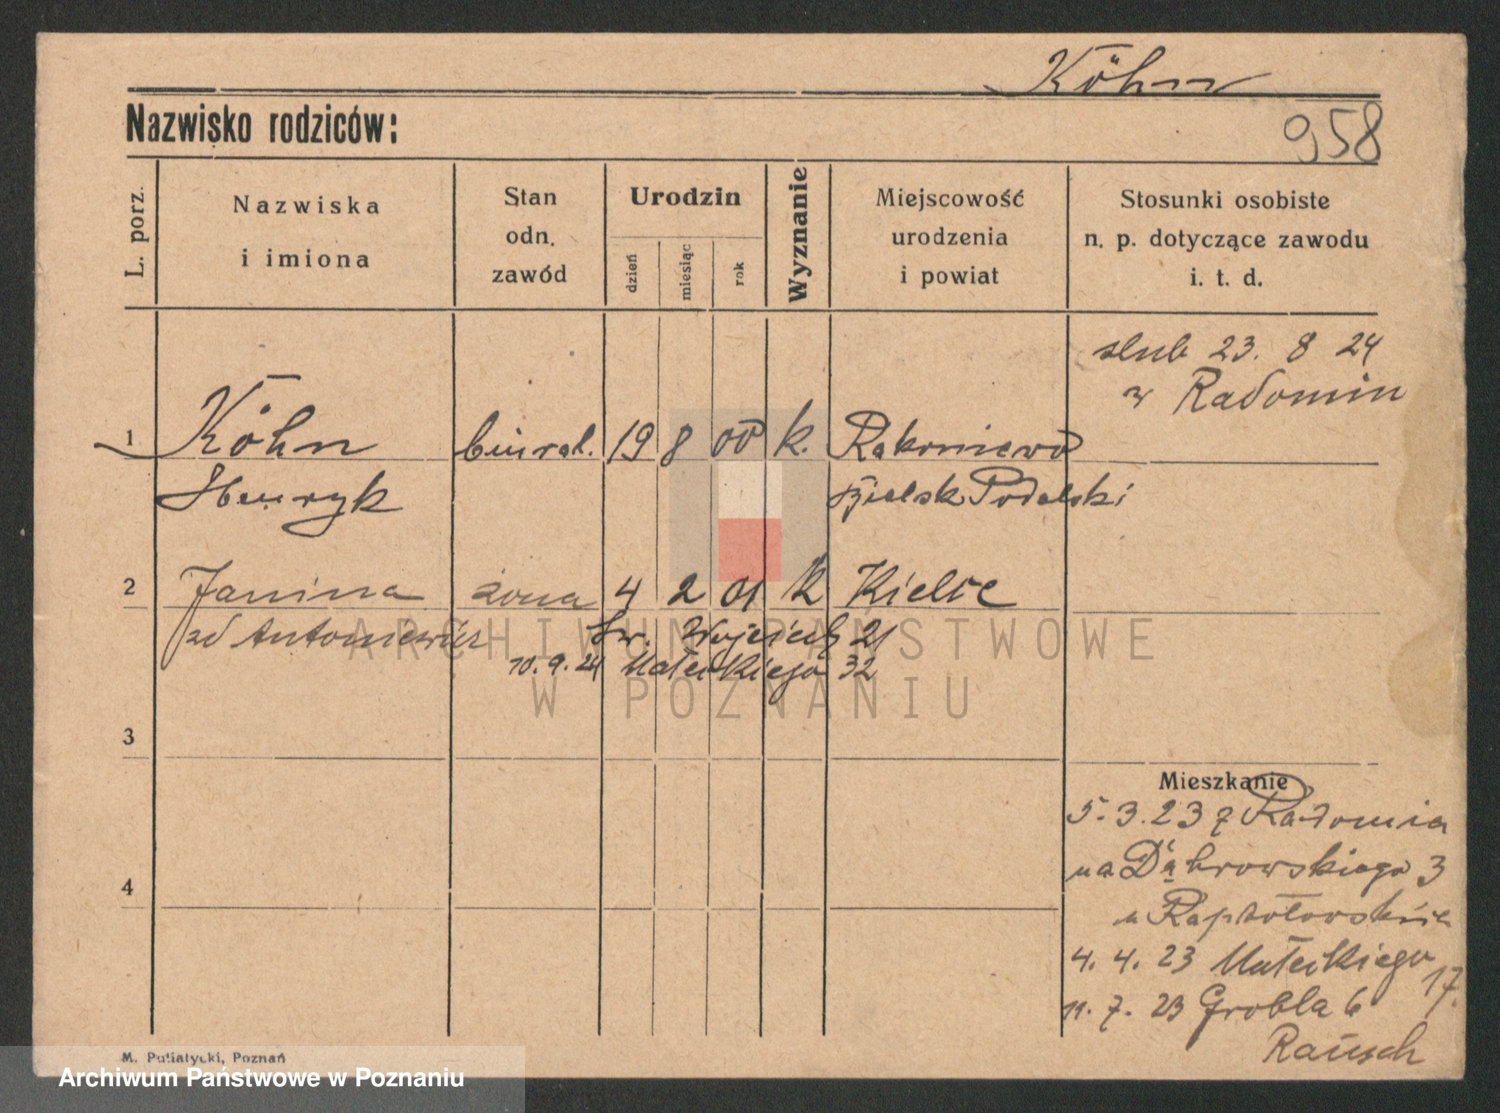 Köhn
Nazwisko rodziców:
958
L. porz.
Nazwiska
i imiona
Stan
odn.
zawód
Urodzin
dzień
miesiąc
rok
Wyznanie
Miejscowość
urodzenia
i powiat
Stosunki osobiste
n. p. dotyczące zawodu
i. t. d.
slub 23. 8 24
w Radomiu
1 Köhn 19 8 00 k. Rakoniewo
Henryk Bielsk Podolski
2 Janina żona 4 2 01 k Kielce
zd Antoniewicz Św. Wojciech 21
10.9.24 Małeckiego 32
ARCHIWUM PAŃSTWOWE
W POZNANIU
3
Mieszkanie
5.3.23 z Radomia
na Dąbrowskiego 3
4
u
4. 4. 23 Małeckiego 17.
11. 7. 23 Grobla 6
Rausch
M. Putiatycki, Poznań
Archiwum Państwowe w Poznaniu